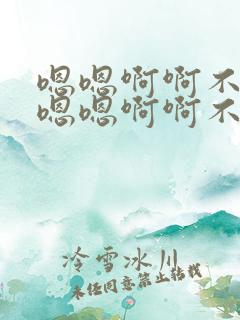 嗯嗯啊啊不
嗯嗯啊啊不
冷雪冰川
未经同意禁止转载